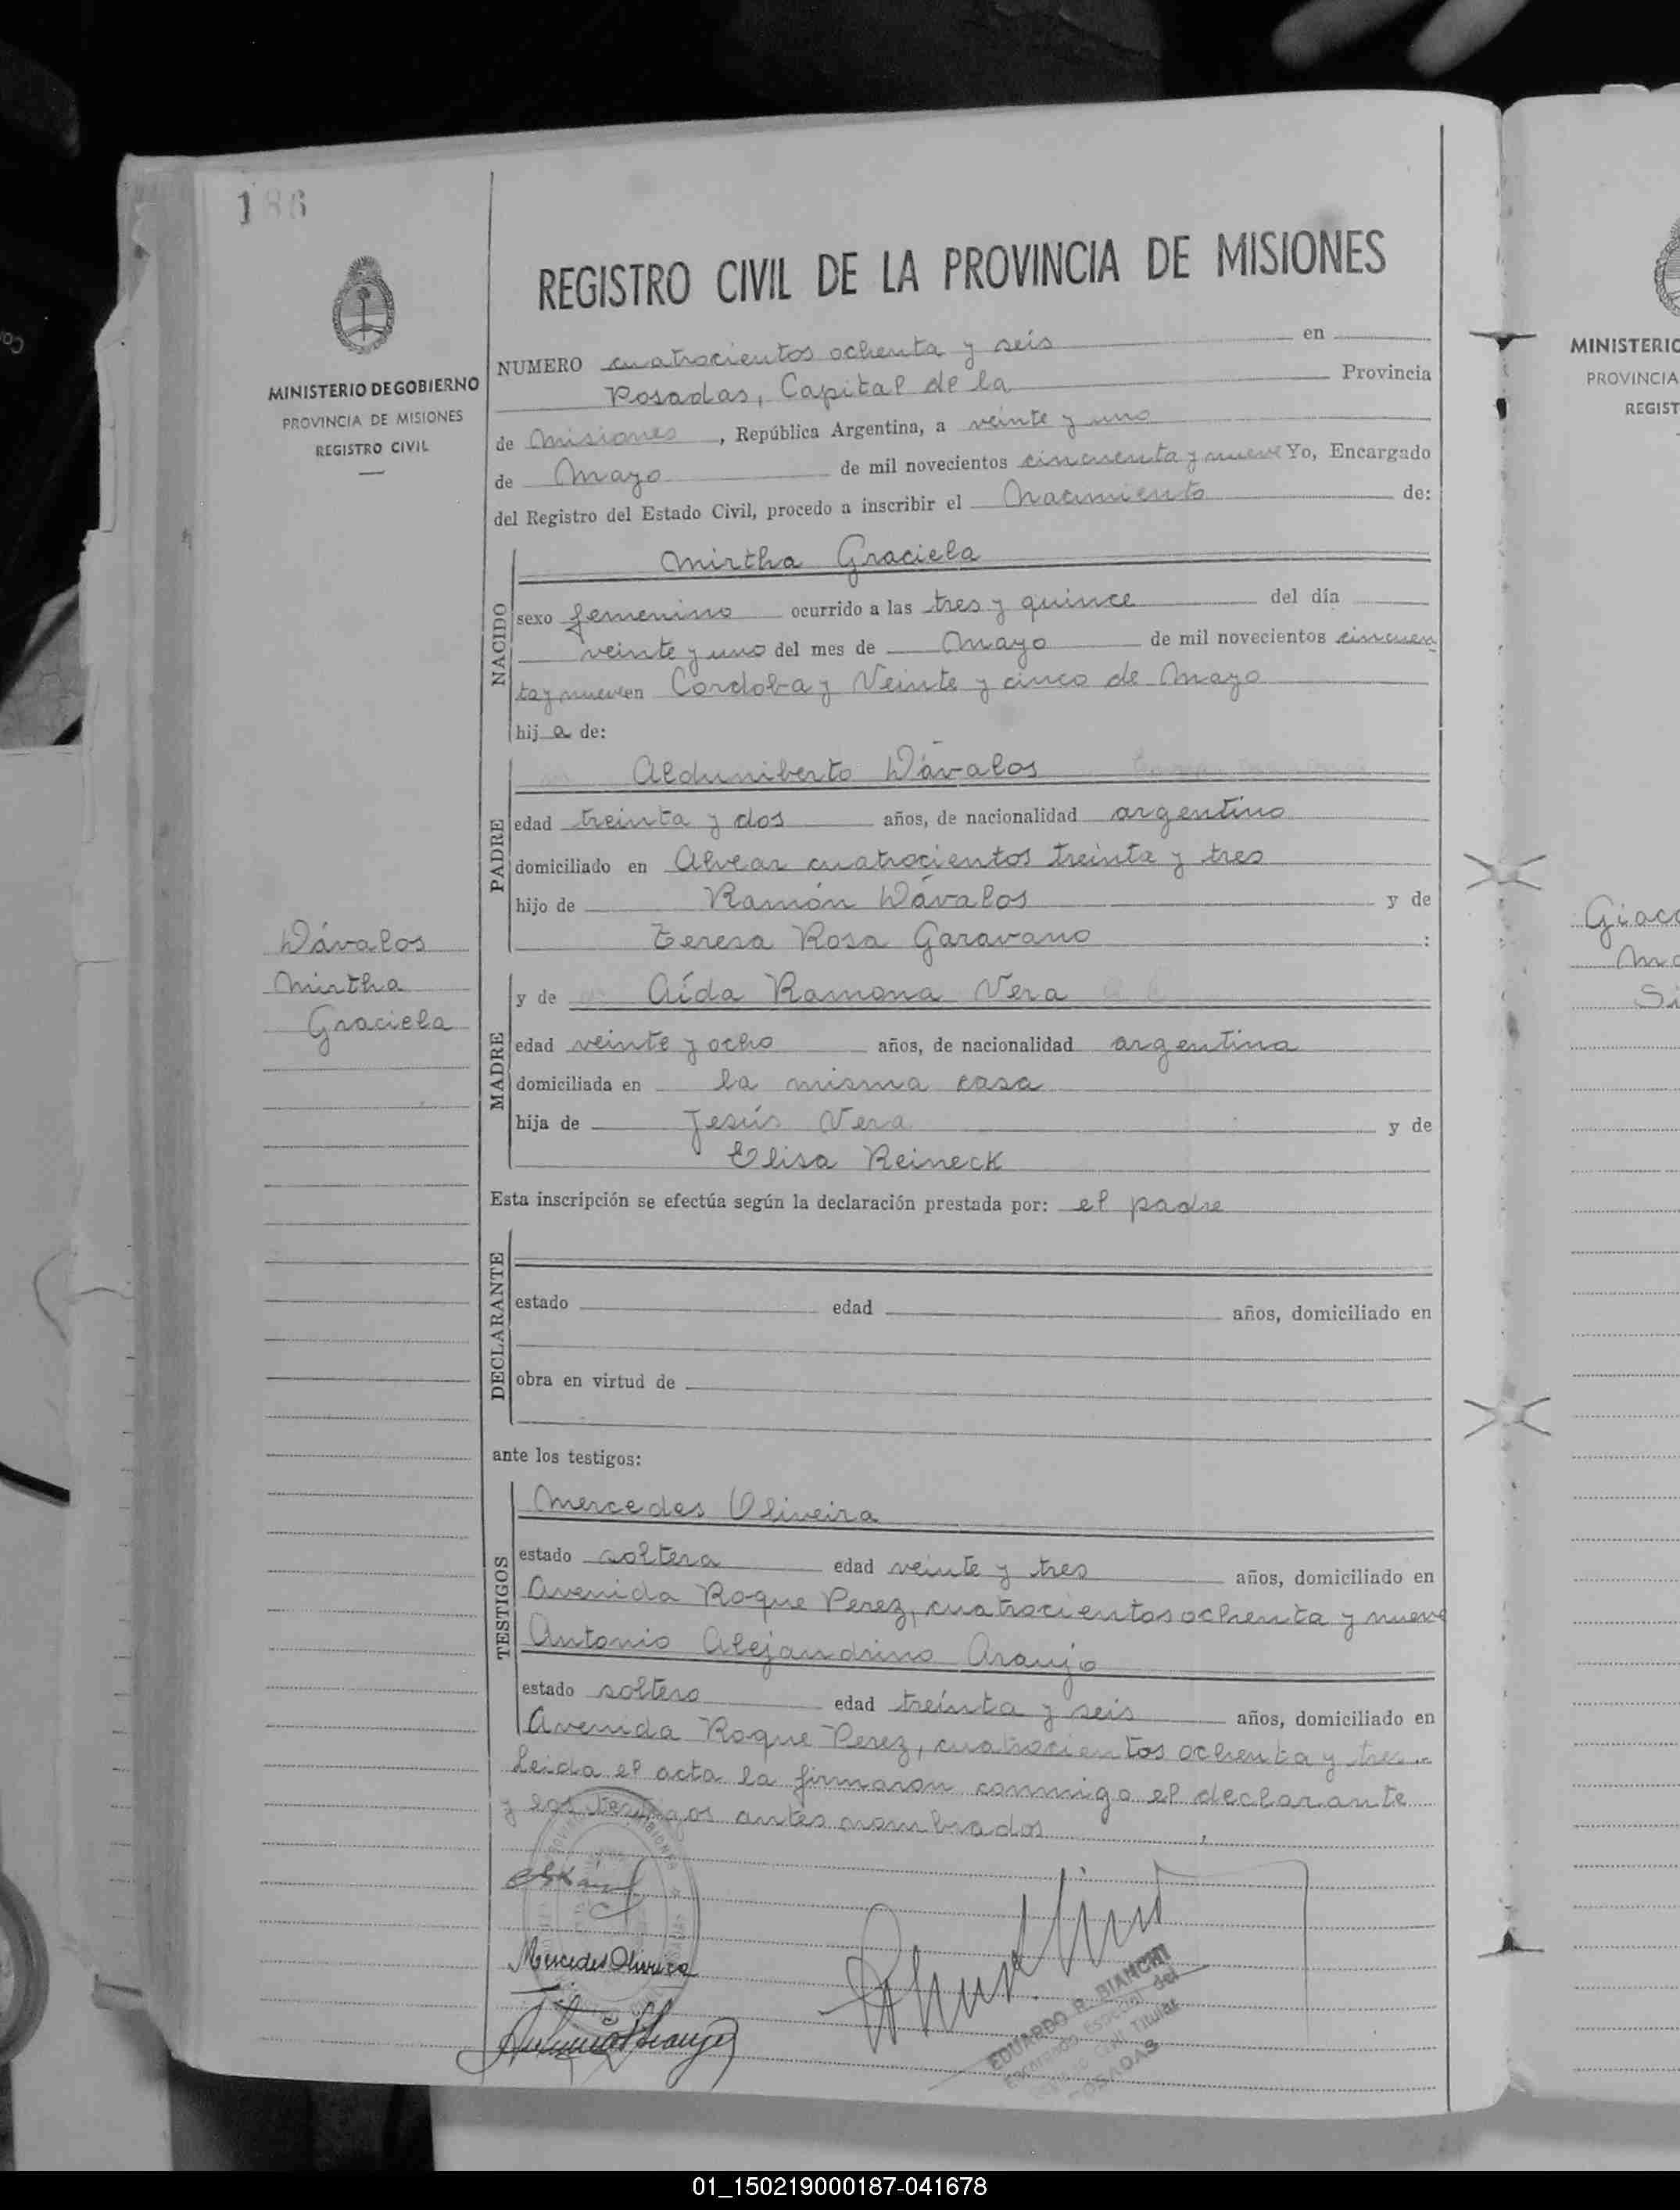 186
MINISTERIO DE GOBIERNO
PROVINCIA DE MISIONES
REGISTRO CIVIL
Dávalos
Mirtha
Graciela
REGISTRO CIVIL DE LA PROVINCIA DE MISIONES
NUMERO cuatrocientos ochenta y seis en
Posadas, Capital de la Provincia
de Misiones, República Argentina, a veinte y uno
de Mayo de mil novecientos cincuenta y nueve Yo, Encargado
del Registro del Estado Civil, procedo a inscribir el Nacimiento de:
NACIDO
Mirtha Graciela
sexo femenino ocurrido a las tres y quince del día
veinte y uno del mes de Mayo de mil novecientos cincuen
ta y nueve en Cordoba y Veinte y cinco de Mayo
hij a de:
PADRE
Aldumiberto Dávalos
edad treinta y dos años, de nacionalidad argentino
domiciliado en Alvear cuatrocientos treinta y tres
hijo de Ramón Dávalos y de
Teresa Rosa Garavano :
MADRE
y de Aída Ramona Vera
edad veinte y ocho años, de nacionalidad argentina
domiciliada en la misma casa
hija de Jesús Vera y de
Elisa Reineck
Esta inscripción se efectúa según la declaración prestada por: el padre
DECLARANTE
estado edad años, domiciliado en
obra en virtud de
ante los testigos:
TESTIGOS
Mercedes Oliveira
estado soltera edad veinte y tres años, domiciliado en
Avenida Roque Perez, cuatrocientos ochenta y nueve
Antonio Alejandrino Araujo
estado soltero edad treinta y seis años, domiciliado en
Avenida Roque Perez, cuatrocientos ochenta y tres.-
Leida el acta la firmaron conmigo el declarante
y los testigos antes nombrados
Mercedes Oliveira
EDUARDO R. BIANCHI
Encargado Especial del
Civil Titular
POSADAS
MINISTERIO
PROVINCIA
REGIST
Giaco
Ma
Si
01_150219000187-041678